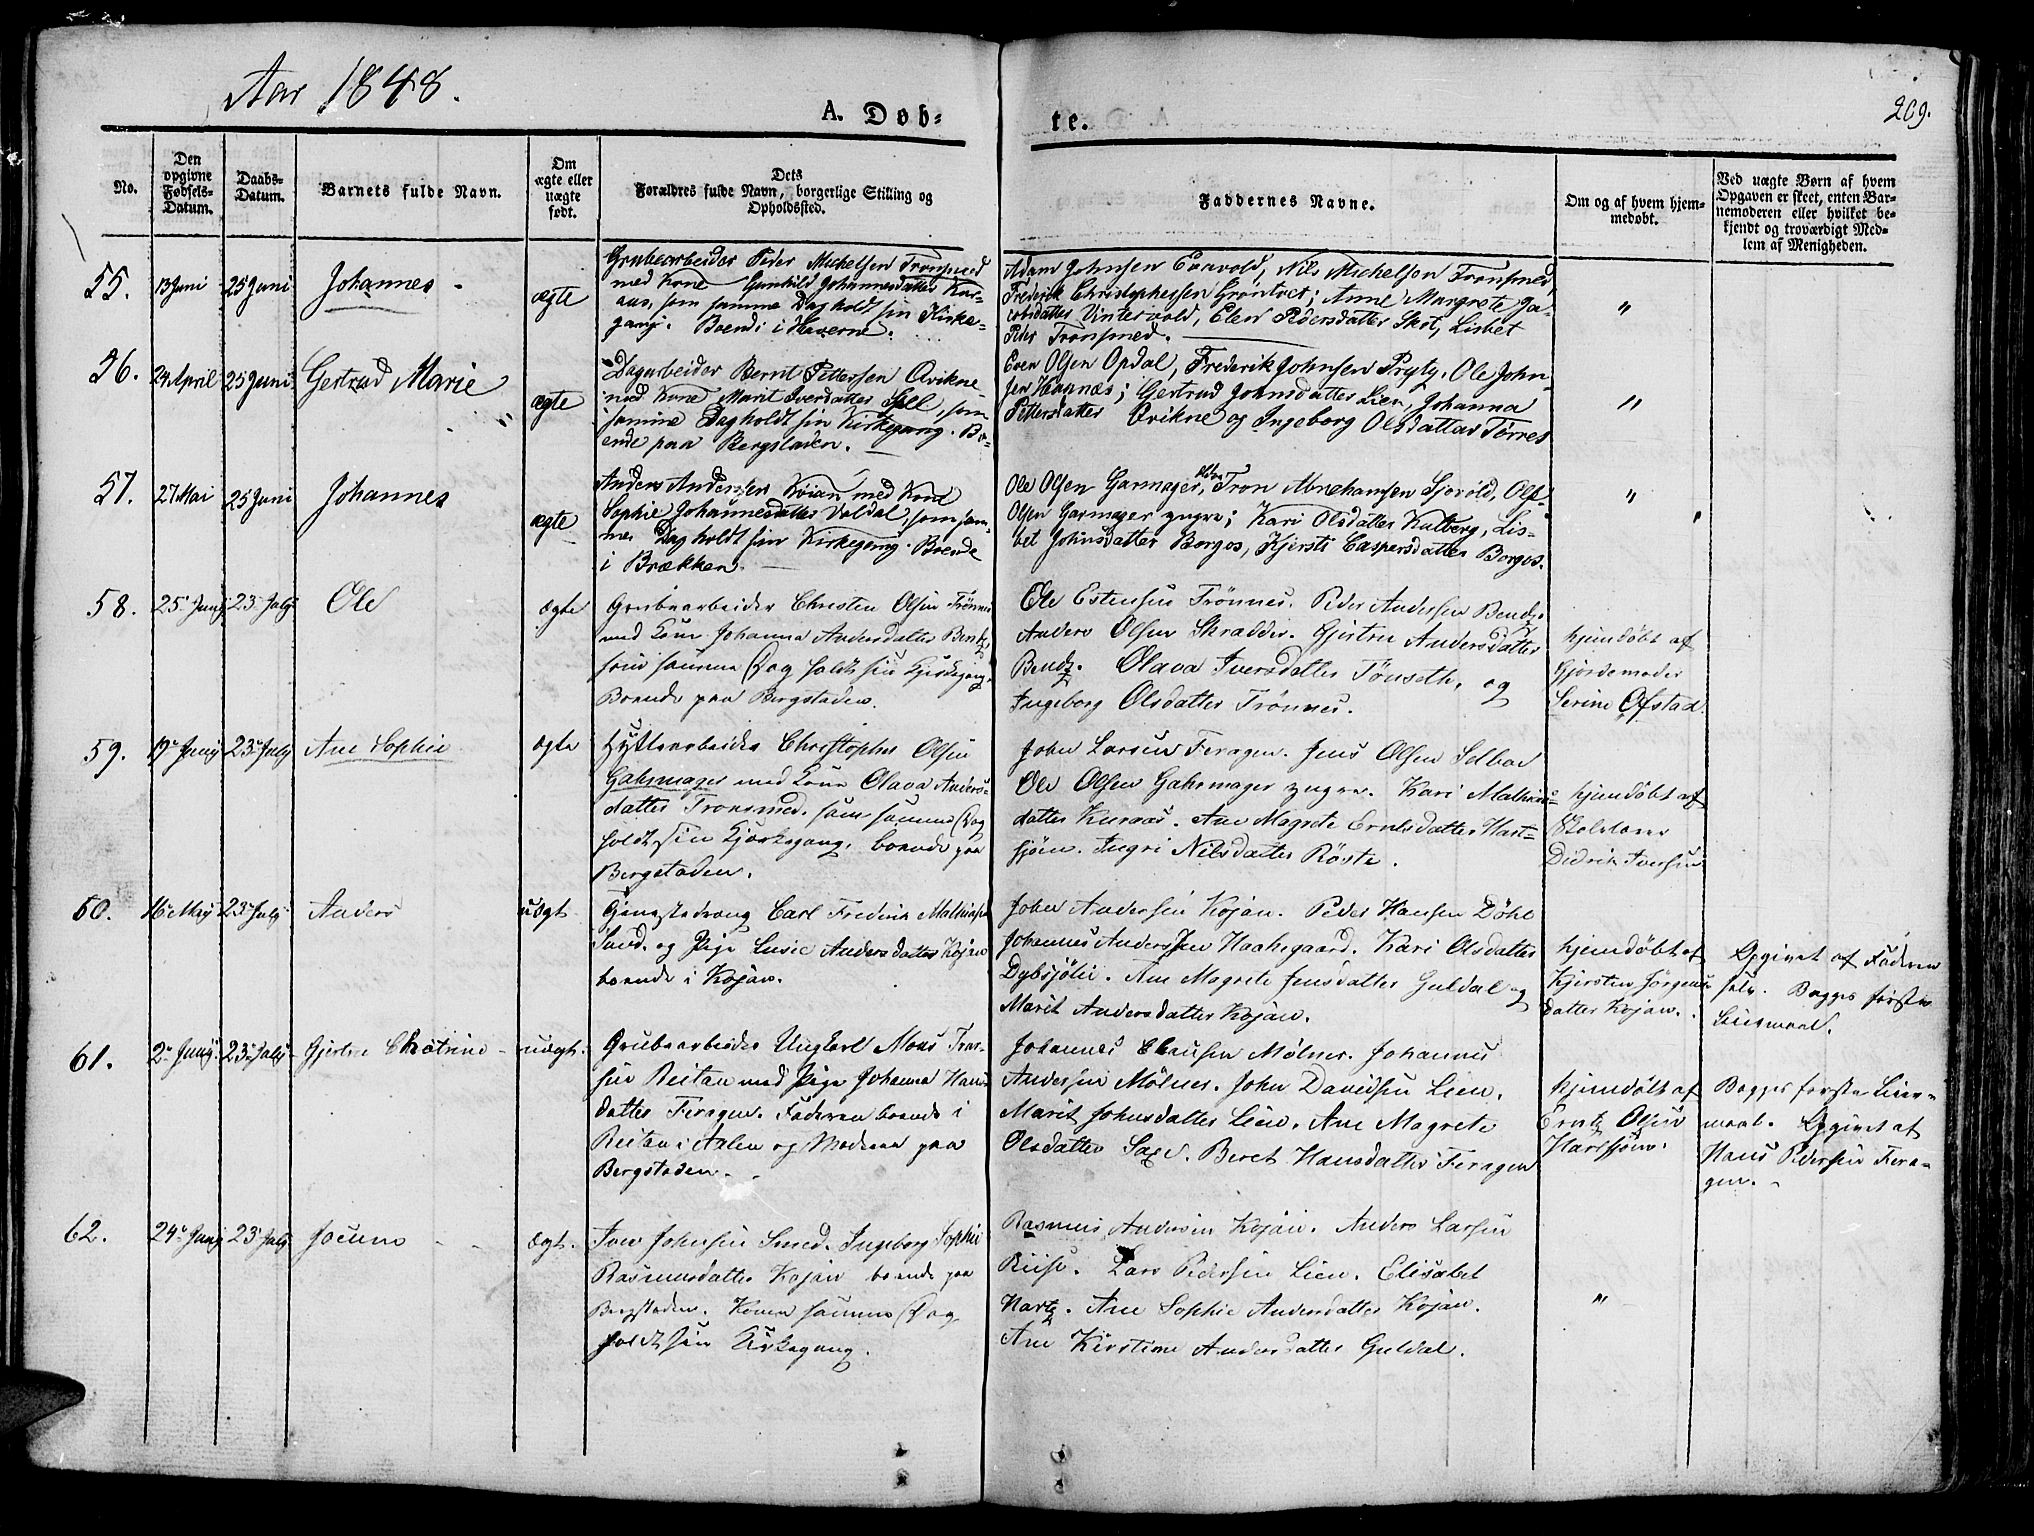 Aar 1848.
A. Døb-
te.
209.
No.
Den
opgivne
Fødsels-
Datum.
Daabs-
Datum.
Barnets fulde Navn.
Om
ægte eller
uægte
født.
Dets
Forældres fulde Navn, borgerlige Stilling og
Opholdssted.
Faddernes Navne.
Om og af hvem hjem-
medøbt.
Ved uægte Børn af hvem
Opgaven er skeet, enten Bar-
nemoderen eller hvilket be-
kjendt og troværdigt Med-
lem af Menigheden.
55.
13 Juni
25 Juni
Johannes -
ægte
Grubearbeider Peder Michelsen Tronsmed
med Kone Gunhild Johannesdatter Kur-
aas, som samme Dag holdt sin Kirke-
gang. Boende i Haverne.
Adam Johnsen Evavold, Nils Michelsen Tronsmed
Frederik Christophersen Gröntvet; Anne Margrete Ja-
cobsdatter Vintervold, Elen Pedersdatter Skot, Lisbet
Peder Tronsmed.
"
26.
24 April
25 Juni
Gertrud Marie
ægte
Dagarbeider Bernt Pettersen Qvikne
med Kone Marit Iversdatter Sell, som
samme Dag holdt sin Kirkegang. Bo-
ende paa Bergstaden.
Even Olsen Opdal, Frederik Johnsen Prytz, Ole John-
sen Hannæs; Gertrud Johnsdatter Lien, Johanna
Pettersdatter Qvikne og Ingeborg Olsdatter Tørres
"
57.
27 Mai
25 Juni
Johannes
ægte
Anders Andersen Kojan med Kone
Sophie Johannesdatter Valdal, som sam-
me Dag holdt sin Kirkegang. Boende
i Brækken.
Ole Olsen Garmager, ældre, Tron Abrahamsen Sjovold, Ole
Olsen Garmager yngre; Kari Olsdatter Kulberg, Lis-
bet Johnsdatter Borgos, Kjersti Caspersdatter Borgos.
"
58.
25 Juni
23 July
Ole
ægte
Grubearbeider Christen Olsen Trönnes
med Kone Johanna Andersdatter Bentz
som samme Dag holdt sin Kjirkegang.
Boende paa Bergstaden.
Ole Estensen Trönnes. Peder Andersen Bendz.
Anders Olsen Skrædder. Gjertru Andersdatter
Bendz. Olava Iversdatter Tönseth. og
Ingeborg Olsdatter Trönnes.
hjemdøbt af
Gjordemoder
Serine Ofstad.
59.
19 Juny
23 July
Ane Sophie
ægte
Hyttearbeider Christopher Olsen
Gahrmager med Kone Olava Anders-
datter Tronsmed. som samme Dag
holdt sin Kjirkegang. boende paa
Bergstaden.
John Larsen Feragen. Jens Olsen Selboe
Ole Olsen Gahrmager yngre. Kari Mathias-
datter Kuraas. Ane Magrete Erntsdatter Hart-
sjöen. Ingri Nilsdatter Röste.
hjemdøbt af
Skolelærer
Didrik Iversen
60.
16 May
23 July
Anders
uægt
Gangstadreng Carl Fredrik Mathiasen
Sand. og Pige Lusie Andersdatter Kojan
boende i Kojan.
John Andersen Kojan. Peder Hansen Döhl
Johannes Andersen Haahegaard. Kari Olsdatter
Dybsjölie. Ane Magrete Jensdatter Guldal og
Marit Andersdatter Kojan.
hjemdøbt af
Kjersten Jörgens-
datter Kojan.
Opgivet af Faderen
selv. Begges første
Leiermaal.
61.
2 Juny
23 July
Gjertru Chatrine -
uægt.
Grubearbeider Ungkarl Mons Tror-
sen Reitan med Pige Johanna Hans-
datter Feragen. Faderen boende i
Reitan i Aalen og Moderen paa
Bergstaden.
Johannes Clausen Mölner. Johannes
Andersen Mölner. John Davidsen Lien.
Marit Johnsdatter Lien. Ane Magrete
Olsdatter Saxe. Beret Hansdatter Feragen
hjemdøbt af
Erntz Olsen
Hartsjöen.
Begges første Leier-
maal. Opgivet af
Hans Pedersen Fera-
gen.
62.
24 Juny
23 July
Jocum
ægt.
Iver Johnsen Smed. Ingeborg Sophie
Rasmusdatter Kojan boende paa
Bergstaden. Konen samme Dag
holdt sin Kirkegang.
Rasmus Andersen Kojan. Anders Larsen
Riise. Lars Pedersen Lien. Elisabet
Hartz. Ane Sophie Andersdatter Kojan.
Ane Kirstine Andersdatter Guldal.
"